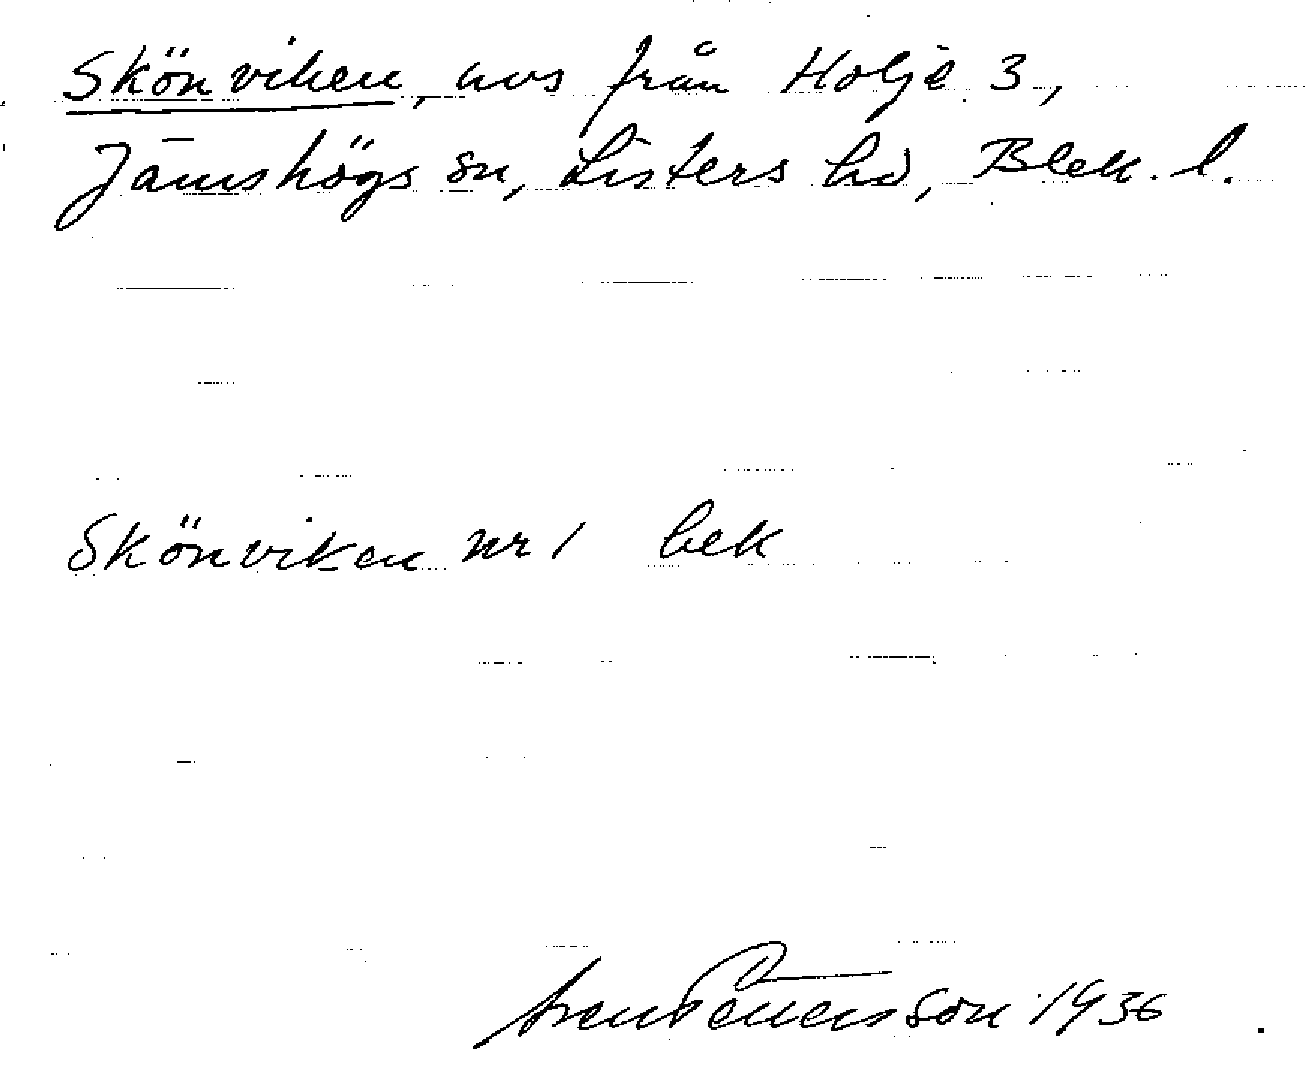 Skönviken, avs från Holje 3,
Jämshögs sn, Listers hd, Blek. l.
Skönviken nr 1 bek
Sven Pettersson 1936